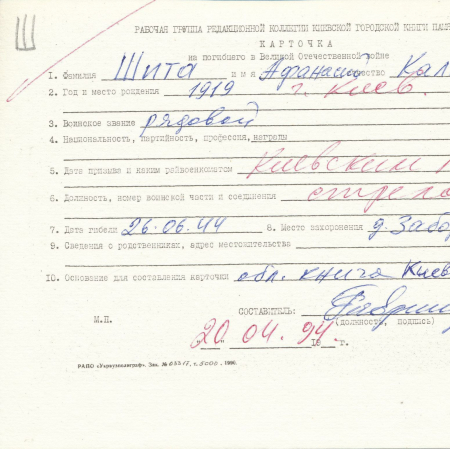 Ш
РАБОЧАЯ ГРУППА РЕДАКЦИОННОЙ КОЛЛЕГИИ КИЕВСКОЙ ГОРОДСКОЙ КНИГИ ПАМ
КАРТОЧКА
на погибшего в Великой Отечественной войне
1. Фамилия Шита имя Афанасий отчество Кал
2. Год и место рождения 1919 г. Киев.
3. Воинское звание рядовой
4. Национальность, партийность, профессия, награды
5. Дата призыва и каким райвоенкоматом Киевским
6. Должность, номер воинской части и соединения стрело
7. Дата гибели 26.06.44 8. Место захоронения д. Забо
9. Сведения о родственниках, адрес местожительства
10. Основание для составления карточки обл. книга Киев
СОСТАВИТЕЛЬ:
(должность, подпись)
М.П. 20.04.94 19 г.
РАПО «Укрвузполиграф». Зак. № т. 5000. 1990.